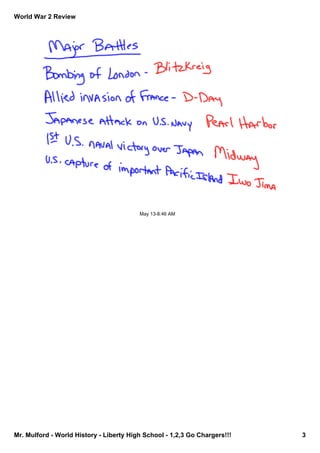 World War 2 Review
Major Battles
Bombing of London - Blitzkreig
Allied invasion of France - D-Day
Japanese Attack on U.S. Navy Pearl Harbor
1st U.S. naval victory over Japan Midway
U.S. capture of important Pacific Island Iwo Jima
May 13-8:46 AM
Mr. Mulford - World History - Liberty High School - 1,2,3 Go Chargers!!! 3